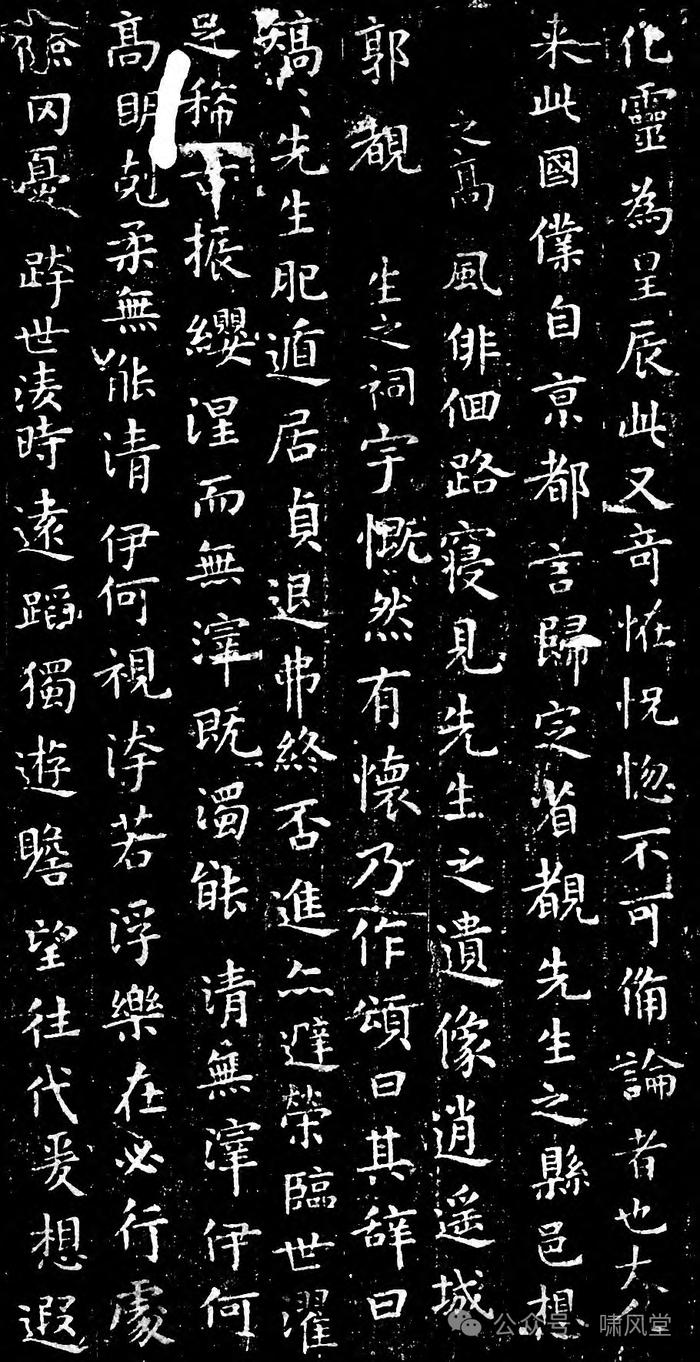 化靈為星辰此又奇恠怳惚不可俻論者也大人
来此國僕自京都言歸定省覩先生之縣邑想
之高風俳佪路寢見先生之遺像逍遥城
郭覩生之祠宇慨然有懷乃作頌曰其辞曰
矯〻先生肥遁居貞退弗終否進亦避榮臨世濯
足稀古振纓涅而無滓既濁能清無滓伊何
高明剋柔無能清伊何視洿若浮樂在必行處
儉罔憂跨世淩時遠蹈獨遊瞻望往代爰想遐
公众号 · 啸风堂